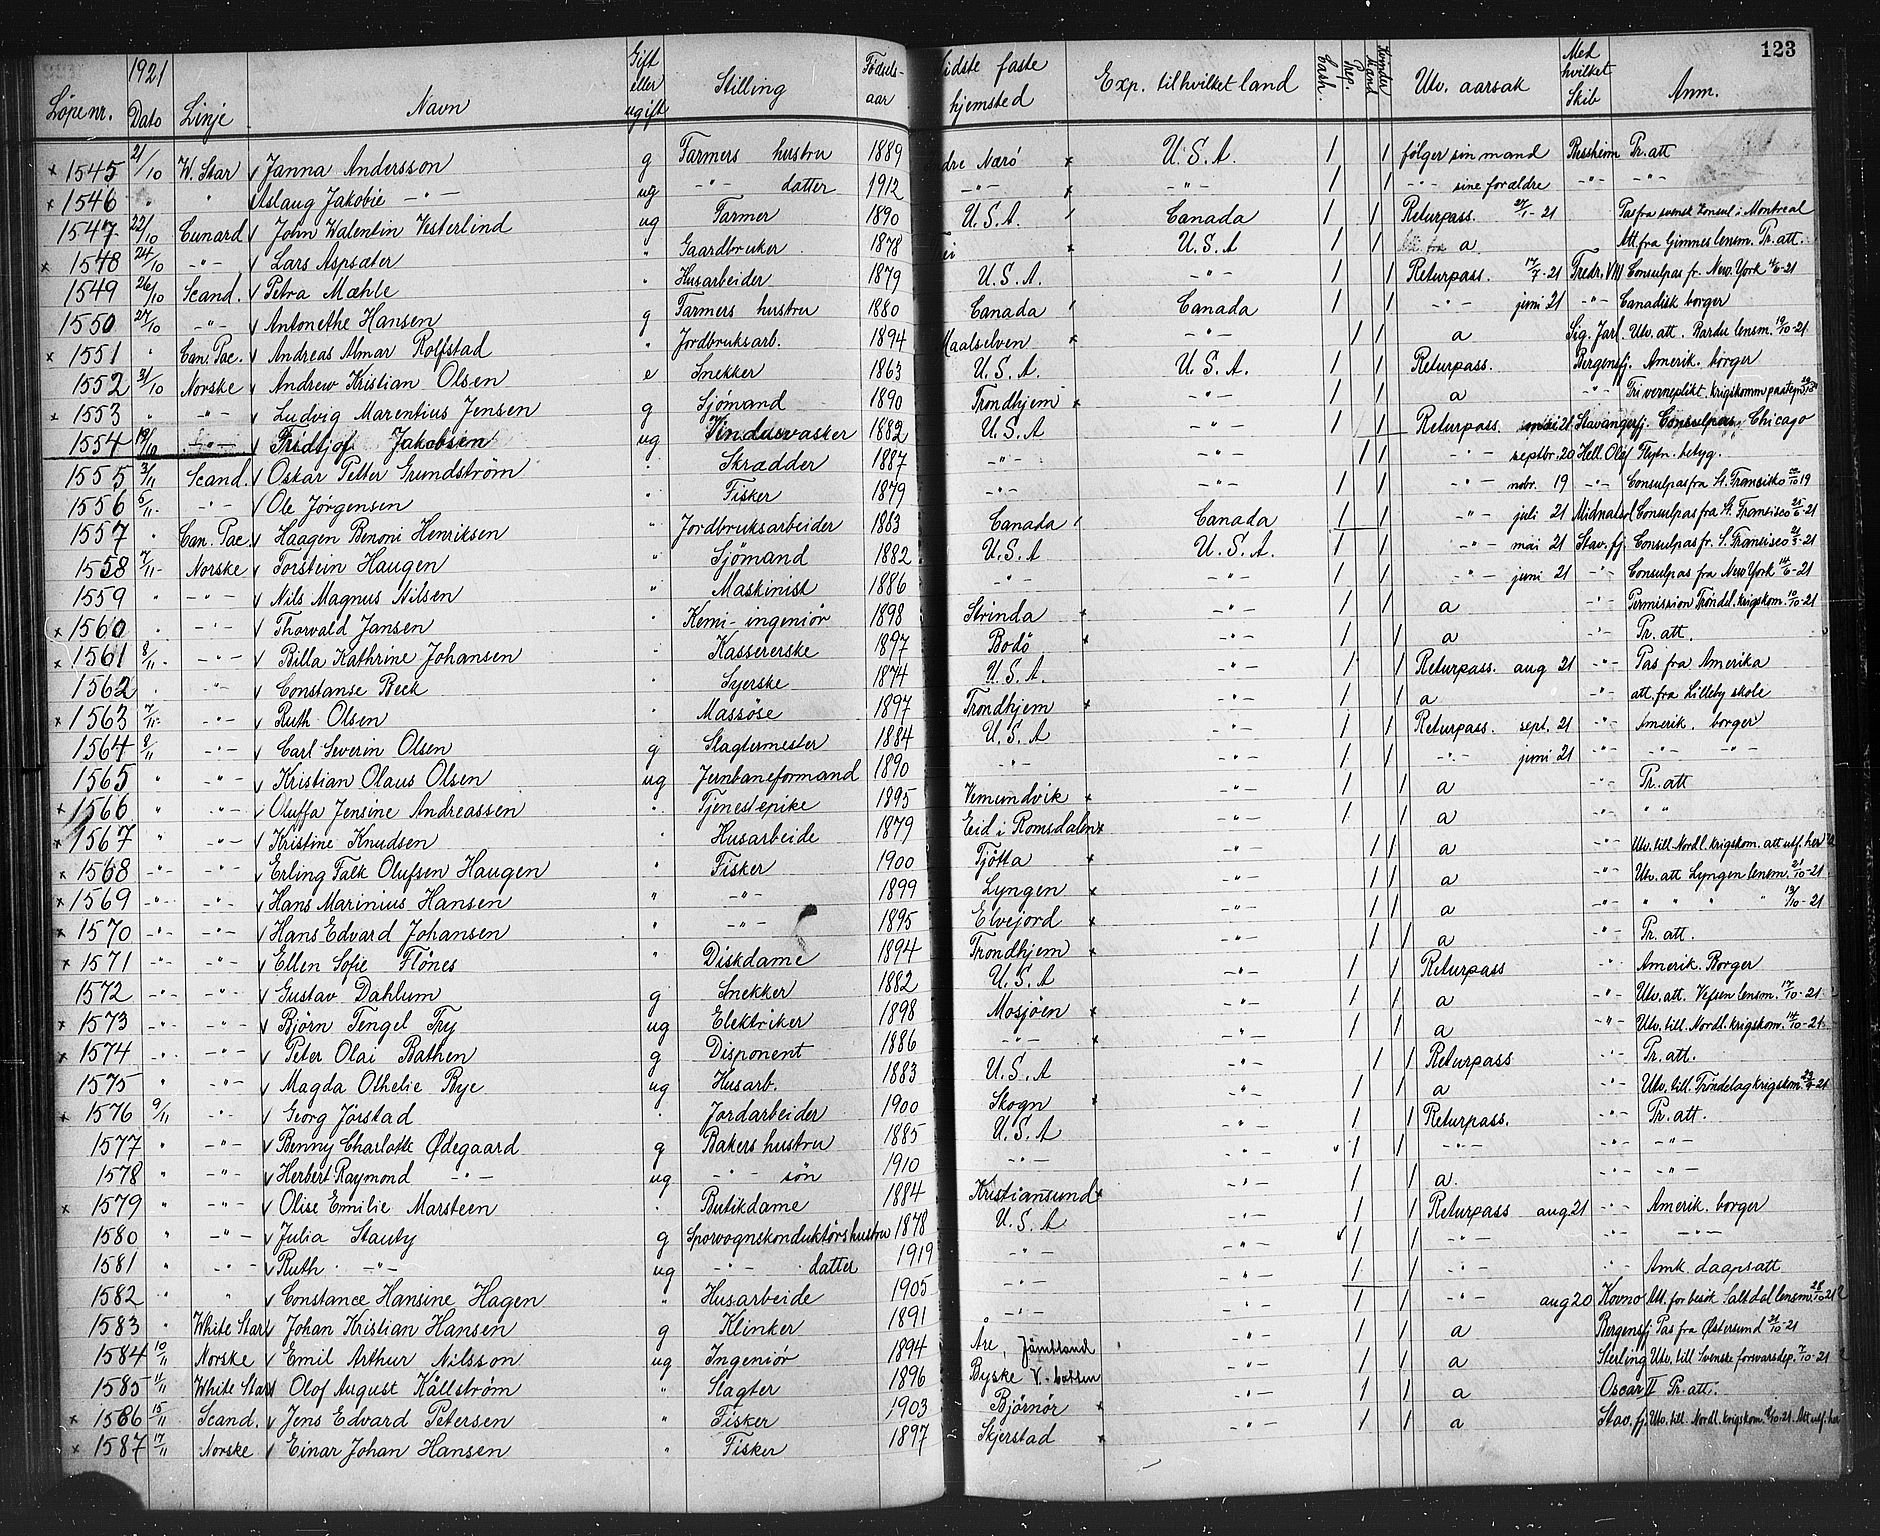 123
1921
Löpenr. Dato Linje Navn Gift eller ugift Stilling Födselsaar sidste faste hjemsted Exp. til hvilket land Cash. Prep. Utv. aarsak Med hvilket Skib Anm.
1545 21/10 W. Star Janna Andersson g Farmers hustru 1889 Nærö U.S.A. 1 1 følger sin mand Bessheim Pr. att
1546 " " Aslaug Jakobie -"- ug -"- datter 1912 -"- -"- 1 1 -"- sine forældre -"- -"-
1547 22/10 Cunard John Walentin Vesterlind ug Farmer 1890 U.S.A. Canada 1 1 Returpass. 27/1-21 Pas fra svensk konsul i Montreal
1548 24/10 -"- Lars Aspsæter " Gaardbruker 1878 U.S.A 1 1 a Att. fra Gimnes lensm. Pr. att.
1549 26/10 Scand. Petra Mæhle " Husarbeider 1879 U.S.A. -"- 1 1 Returpass. 17/7-21 Fredr. VIII Consulpas fr. New. York 11/6-21
1550 27/10 -"- Antonethe Hansen g Farmers hustru 1880 Canada Canada 1 1 -"- juni 21 -"- Canadisk borger
1551 " Can. Pac. Andreas Almar Rolfstad " Jordbruksarb. 1894 Maalselven -"- 1 1 a Sig. Jarl. Utv. att. Bardu lensm. 19/10-21
1552 31/10 Norske Andrew Kristian Olsen e Snekker 1863 U.S.A. U.S.A. 1 1 Returpass. Bergensfj. Amerik. borger
1553 " -"- Ludvig Marentius Jensen g Sjömand 1890 Trondhjem -"- 1 1 a -"- Fri vernepligt. krigskomm.
1554 19/10 -"- Fridtjof Jakobsen ug Vindusvasker 1882 U.S.A -"- 1 1 Returpass. mai 21 Stavangerfj. Consulpas, Chicago
1555 3/11 Scand. Oskar Petter Grundström " Skrædder 1887 -"- -"- 1 1 -"- septbr. 20 Hell. Olaf Flytn. betyg.
1556 5/11 -"- Ole Jörgensen " Fisker 1879 -"- -"- 1 1 -"- nobr. 19 -"- Consulpas fra St. Fransisko 22/10 19
1557 " Can. Pac. Haagen Benoni Henriksen " Jordbruksarbeider 1863 Canada Canada 1 1 -"- juli 21 Midnatsol Consulpas fra St. Francisco 25/6-21
1558 7/11 Norske Torstein Haugen " Sjömand 1882 U.S.A U.S.A. 1 1 -"- mai 21 Stav. fj. Consulpas fr. S. Francisco 21/3-21
1559 " -"- Nils Magnus Nilsen " Maskinist 1886 -"- -"- 1 1 -"- juni 21 -"- Consulpas fra New York 14/6-21
1560 " -"- Thorvald Jansen " Kemi-ingeniör 1898 Strinda -"- 1 1 a -"- Permission Tröndl. krigskom. 10/10-21
1561 8/11 -"- Billa Kathrine Johansen " Kassererske 1897 Bodö -"- 1 1 a -"- Pr. att.
1562 " -"- Constanse Beck " Syerske 1874 U.S.A. -"- 1 1 Returpass. aug 21 -"- Pas fra Amerika
1563 7/11 -"- Ruth Olsen " Massöse 1897 Trondhjem -"- 1 1 a -"- att. fra Lilleby skole
1564 8/11 -"- Carl Severin Olsen g Slagtermester 1884 U.S.A -"- 1 1 Returpass. sept. 21 -"- Amerik. borger
1565 " -"- Kristian Olaus Olsen ug Jernbaneformand 1890 -"- -"- 1 1 -"- juni 21 -"- -"- -"-
1566 " -"- Oluffa Jensine Andreassen " Tjenestepike 1895 Vemundvik -"- 1 1 a -"- Pr. att
1567 " -"- Kristine Knudsen " Husarbeide 1879 Eid i Romsdalen -"- 1 1 a " "
1568 -"- -"- Erling Falk Olufsen Haugen " Fisker 1900 Tjötta -"- 1 1 a -"- Utv. till Nordl. krigskom. att utf. her
1569 -"- -"- Hans Marinius Hansen " -"- 1899 Lyngen -"- 1 1 a -"- Utv. att Lyngen lensm. 21/10-21
1570 -"- -"- Hans Edvard Johansen " -"- 1895 Elvejord -"- 1 1 a -"- " " " " 13/10-21
1571 -"- -"- Ellen Sofie Flönes " Diskdame 1894 Trondhjem -"- 1 1 a -"- Pr. att.
1572 -"- -"- Gustav Dahlum g Snekker 1882 U.S.A -"- 1 1 Returpass -"- Amerik. Borger
1573 -"- -"- Björn Tengel Fry ug Elektriker 1898 Mosjöen -"- 1 1 a -"- Utv. att. Vefsen lensm. 17/10-21
1574 -"- -"- Peter Olai Bathen g Disponent 1886 -"- -"- 1 1 a -"- Utv. till Nordl. krigskom. 14/10-21
1575 " -"- Magda Othelie Bye ug Husarb. 1883 U.S.A -"- 1 1 Returpass -"- Pr. att.
1576 9/11 -"- Georg Jorstad " Jordarbeider 1900 Skogn -"- 1 1 a -"- Utv. till. Tröndelag krigskom. 23/9-21
1577 " -"- Benny Charlotte Ødegaard g Bakers hustru 1885 U.S.A -"- 1 1 Returpass. -"- Pr. att.
1578 " -"- Herbert Raymond -"- ug -"- sön 1910 -"- -"- 1 1 -"- -"- -"-
1579 " -"- Olise Emilie Marsteen " Butikdame 1884 Kristiansund -"- 1 1 a. -"- -"-
1580 " -"- Julia Stauby g Sporvognskonduktörs hustru 1878 U.S.A -"- 1 1 Returpass aug 21 -"- Amerik. borger
1581 " -"- Ruth -"- ug -"- datter 1919 -"- -"- 1 1 -"- -"- -"-
1582 " " Constance Hansine Hagen " Husarbeide 1905 -"- -"- 1 1 -"- -"- Amk. daapsatt
1583 " White Star Johan Kristian Hansen g Klinker 1891 -"- -"- 1 1 -"- aug 20 Kovno Att. for besök Saltdal lensm. 28/10 21
1584 10/11 Norske Emil Arthur Nilsson ug Ingeniör 1894 Åre, Jämtland -"- 1 1 a Bergensfj Pas fra Østersund 21/10-21
1585 11/11 White Star Olof August Källström " Slagter 1896 Byske V.-botten -"- 1 1 a Sterling Utv. till Svenske forsvarsdep. 7/10-21
1586 15/11 Scand. Jens Edvard Petersen " Fisker 1903 Björnör -"- 1 1 a Oscar II Pr. att.
1587 17/11 Norske Einar Johan Hansen " Fisker 1897 Skjerstad -"- 1 1 a Stav. fj. Utv. till. Nordl. krigskom. Att utf. her